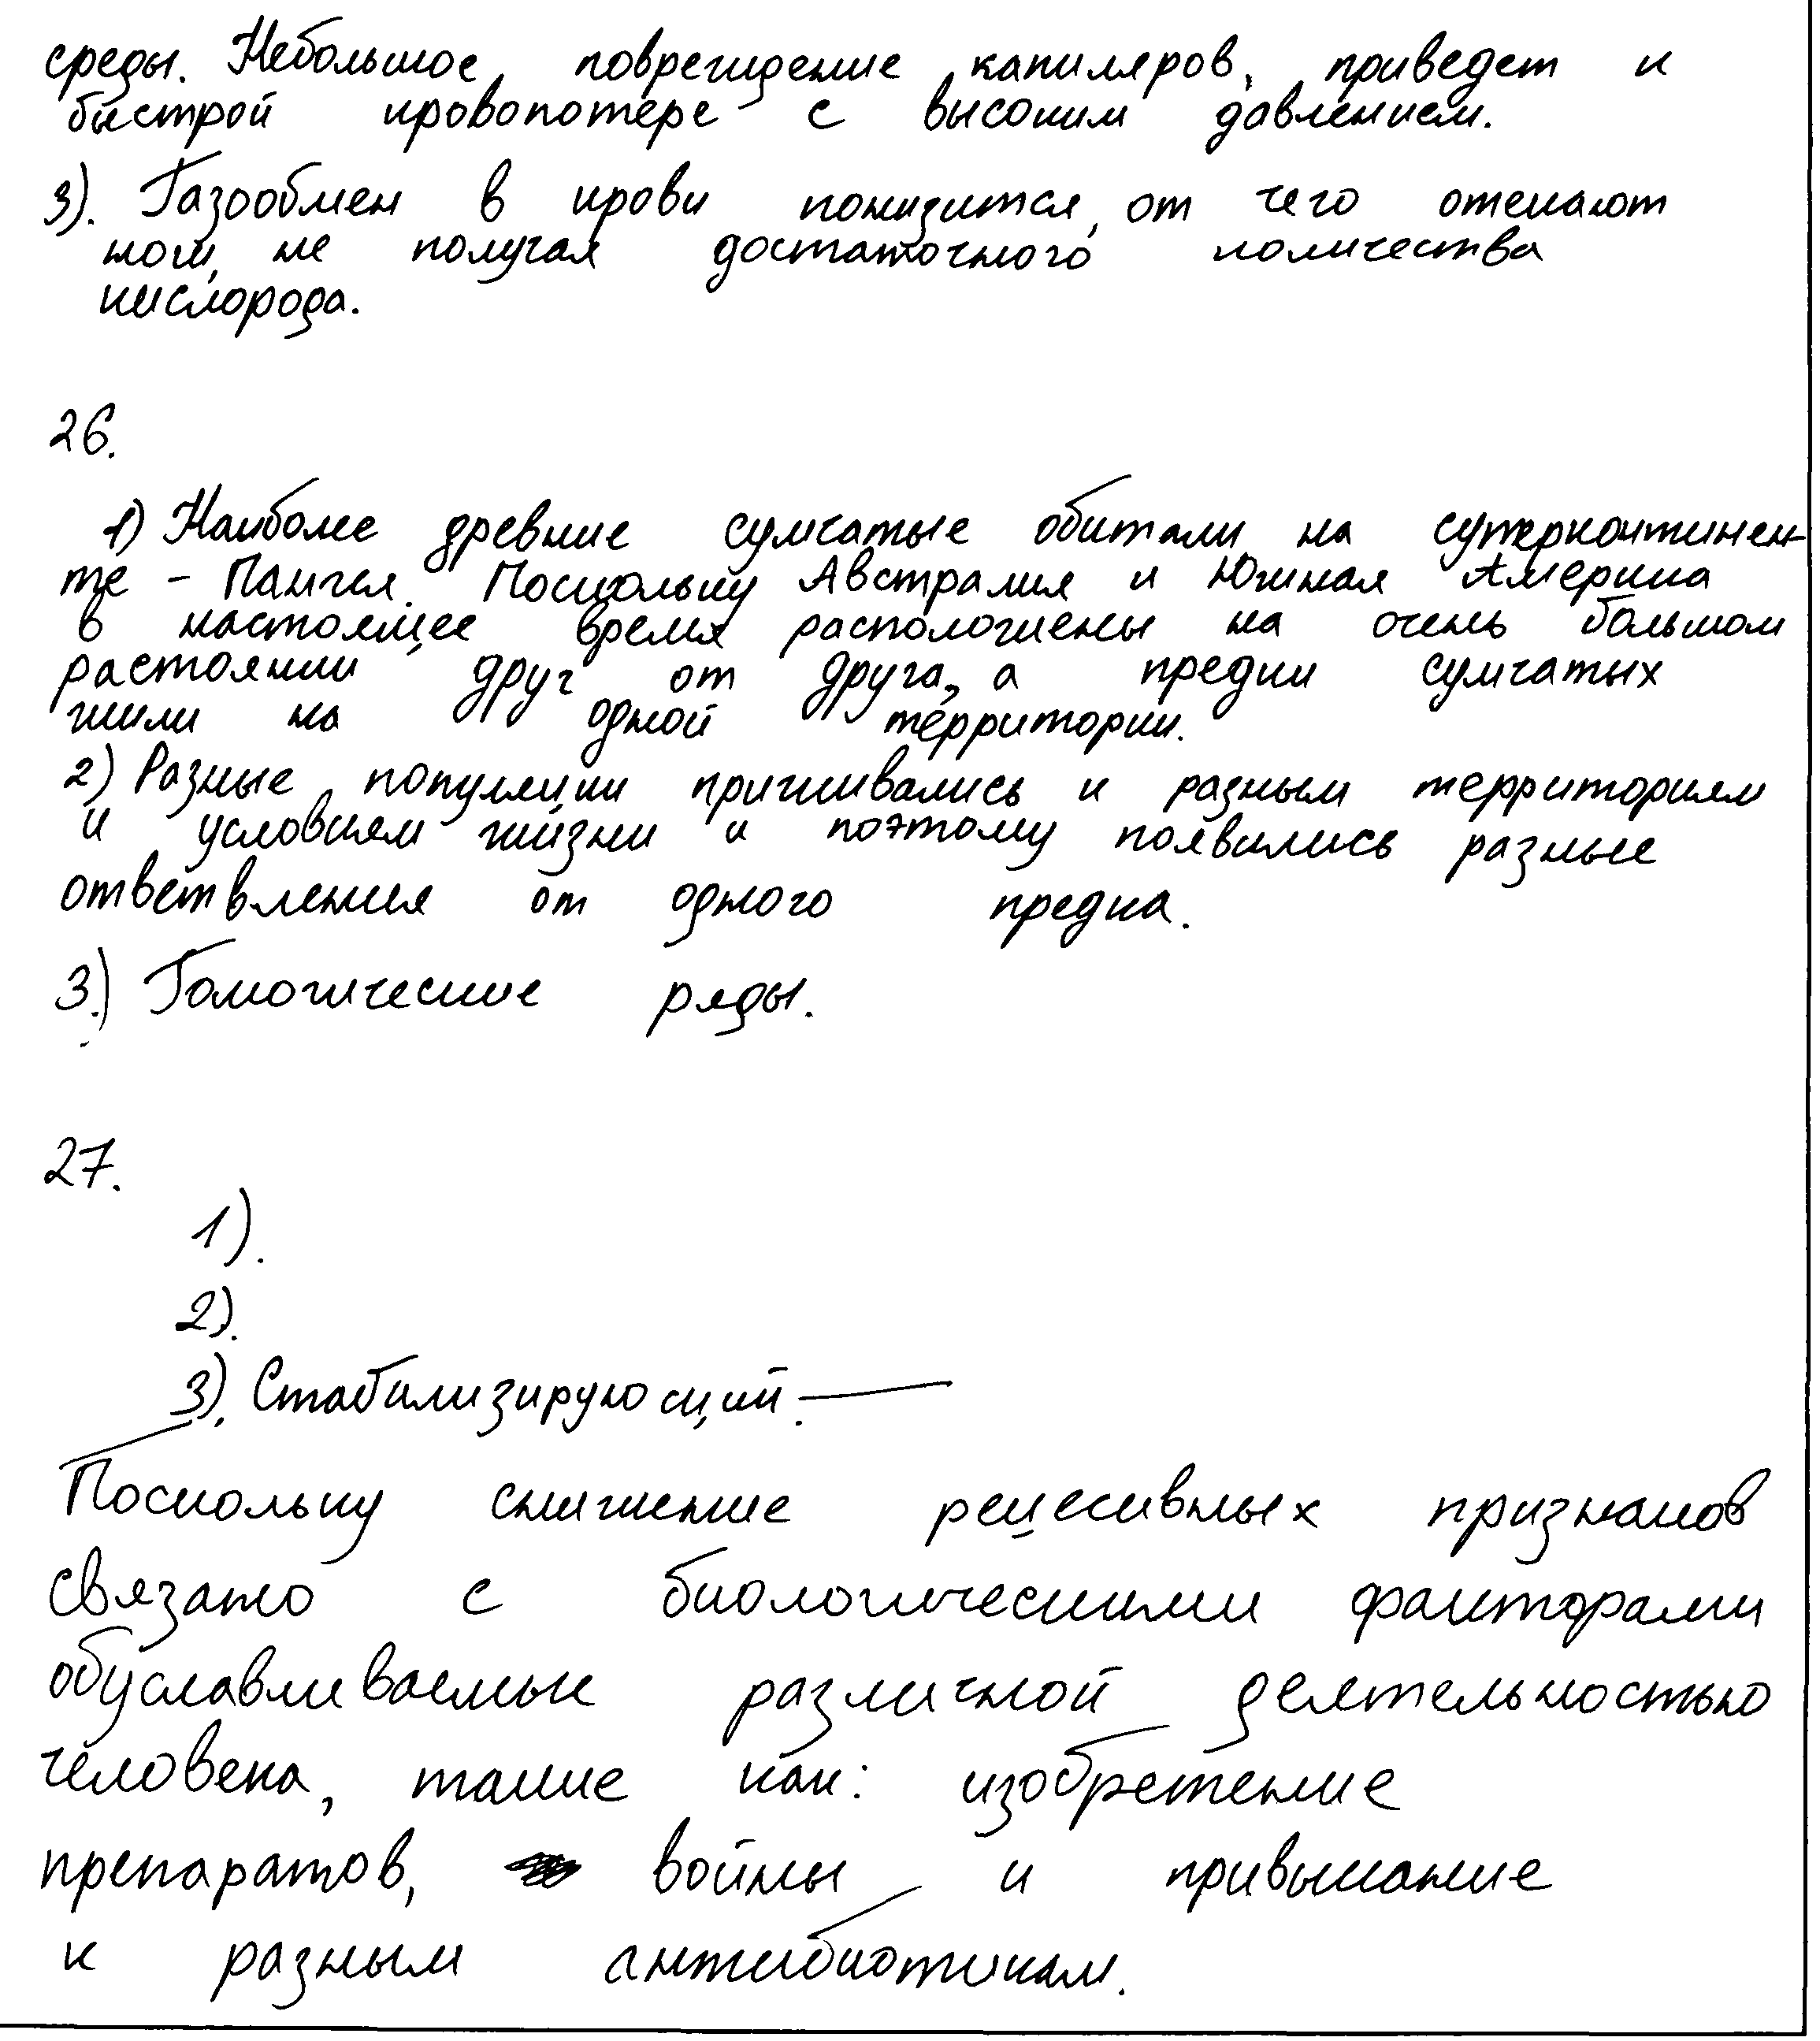 среды. Небольшое повреждение капиляров, приведет к
быстрой кровопотере с высоким давлением.
3). Газообмен в крови понизится, от чего отекают
ноги, не получая достаточного количества
кислорода.
26.
1) Наиболее древние сумчатые обитали на суперконтинен-
те - Пангея. Поскольку Австралия и Южная Америка
в настоящее время распологжены на очень большом
растоянии друг от друга, а предки сумчатых
жили на одной территории.
2) Разные популяции приживались к разным территориям
и условиям жизни и поэтому появились разные
ответвления от одного предка.
3.) Гомогические ряды.
27.
1).
2).
3). Стабилизирующий.
Поскольку снижение рецесивных признаков
связано с биологическими факторами
обуславливаемые различной деятельностью
человека, такие как: изобретение
препаратов, войны и привыкание
к разным антибиотикам.